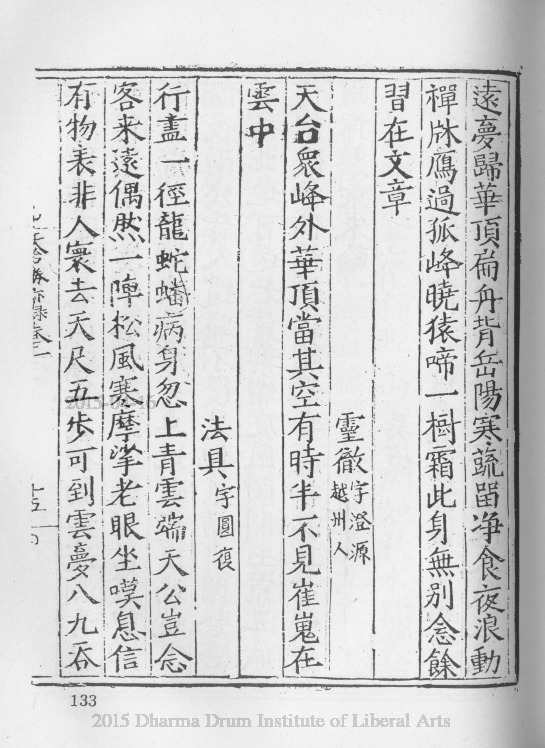 遠夢歸華頂扁舟背岳陽寒蔬留淨食夜浪動
禪牀鴈過孤峰曉猿啼一樹霜此身無別念餘
習在文章
靈徹字澄源越州人
天台衆峰外華頂當其空有時半不見崔嵬在
雲中
法具字圓復
行盡一徑龍蛇蟠病身忽上青雲端天公豈念
客来遠偶然一陣松風寒摩挲老眼坐嘆息信
有物表非人寰去天尺五步可到雲夢八九吞
天台勝蹟録卷一
十五
133
2015 Dharma Drum Institute of Liberal Arts